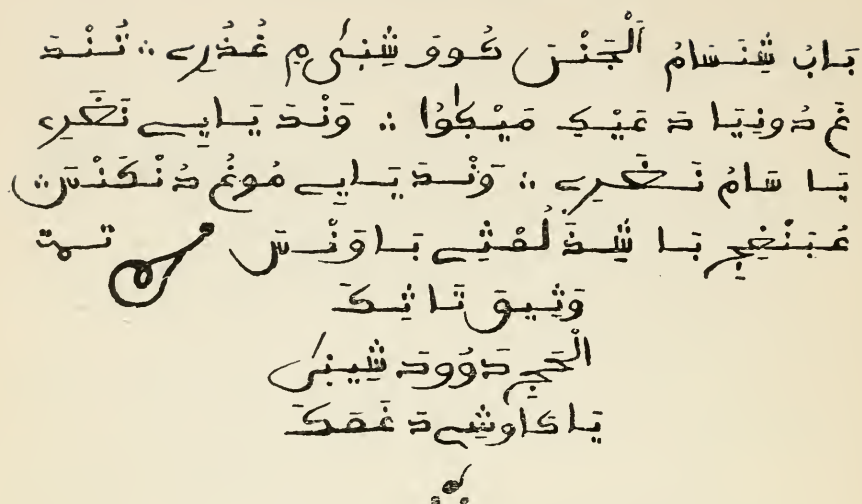 بَابُ شِنَسَامُ اَلْجَنَّسَ كُووَ شِنَىٰ مِ غُدُرِے ؞ تُنْدَ
غَ دُونِيَا دَ عَيْكِ مَيْكَاوُا ؞ وَنْدَ يَايِے نَغَرِے
يَا سَامُ نَغَرِے ؞ وَنْدَ يَايِے مُوغُ دُنْكَنْسَ ؞
عُبَنْغِجِ بَا شِذَ لُمْثِے بَاوَنْسَ تمت
وَثِيقَ تَا ثِكَ
اَلْحَجِ دَوُودَ شِينَىٰ
يَا كَاوشِے دَ غَصَكَ